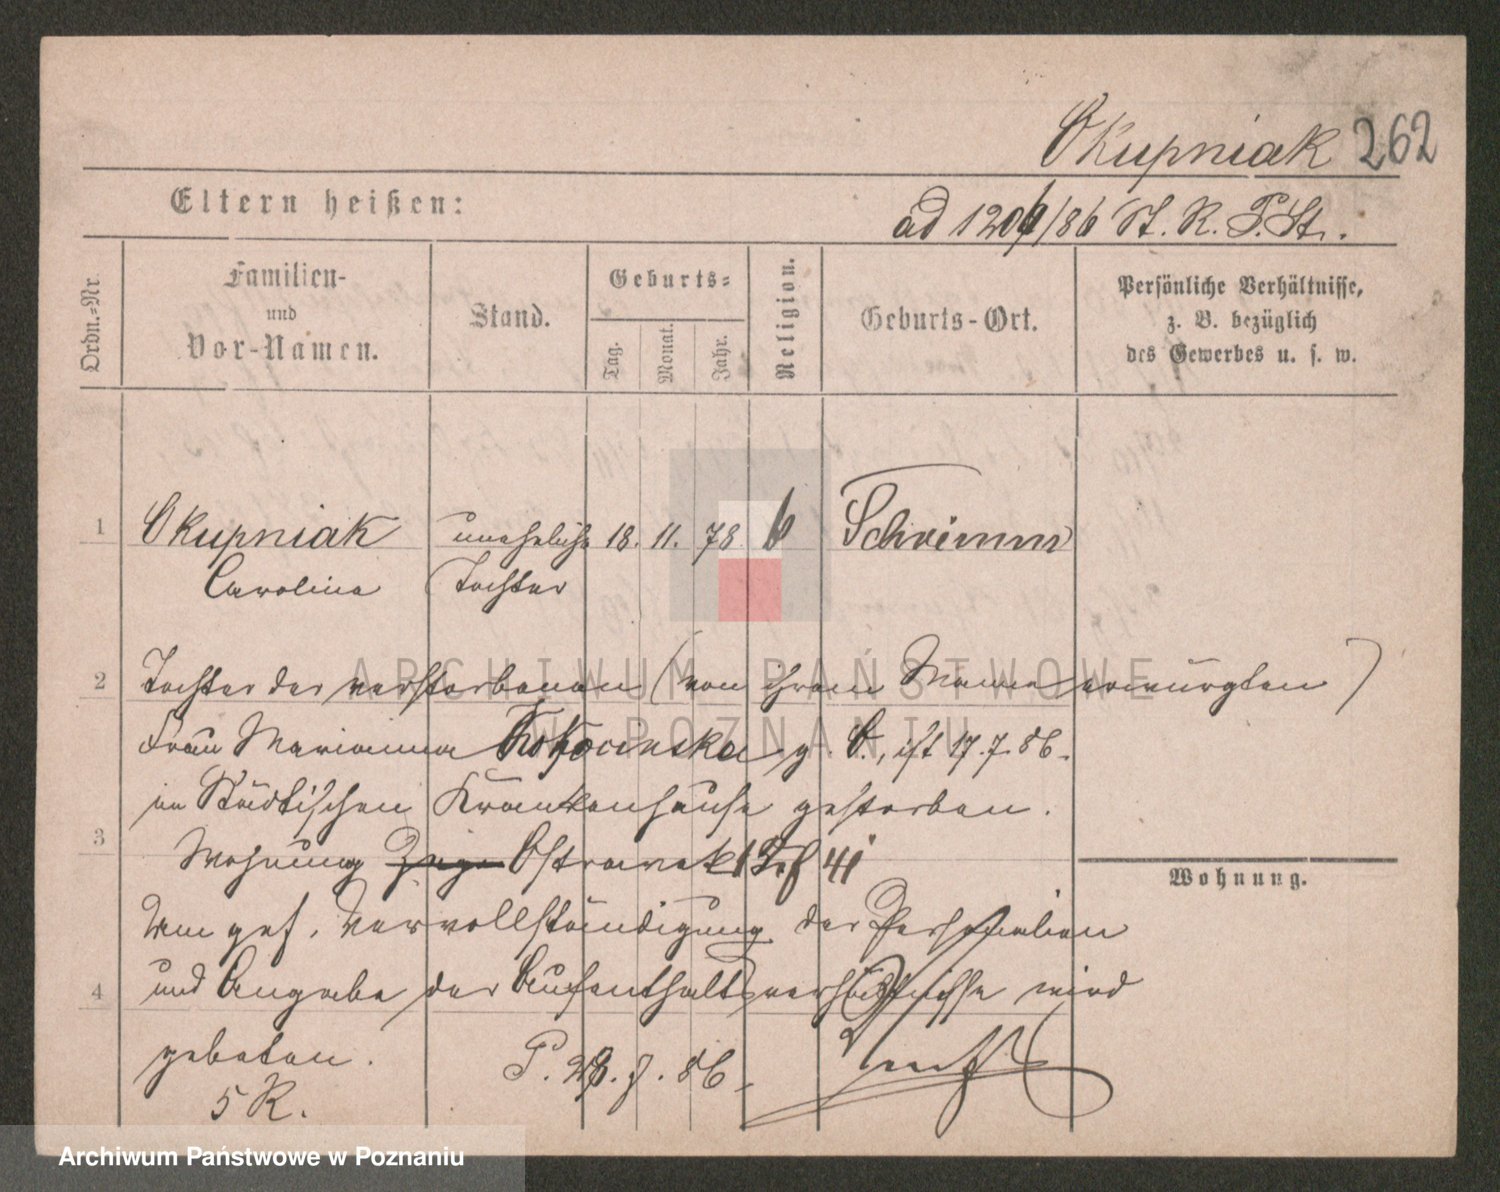 Okupniak 262
Eltern heißen:
ad 1204/86 St. R. P. St.
Ordn.-Nr.
Familien-
und
Vor-Namen.
Stand.
Geburts-
Tag.
Monat.
Jahr.
Religion.
Geburts-Ort.
Persönliche Verhältnisse,
z. B. bezüglich
des Gewerbes u. s. w.
1 Okupniak uneheliche 18. 11. 78 Schrimm
Carolina Tochter
2 Tochter der verstorbenen (von ihrem Manne erwürgten)
Frau Marianna g. O., ist 17. 7. 86.
im Städtischen Krankenhause gestorben.
3 Wohnung Ostrowek
Wohnung.
Um gef. Vervollständigung der Personalien
4 und Angabe der Aufenthaltsverhältnisse wird
gebeten. P. 86.
5 R.
ARCHIWUM PAŃSTWOWE
W POZNANIU
Archiwum Państwowe w Poznaniu